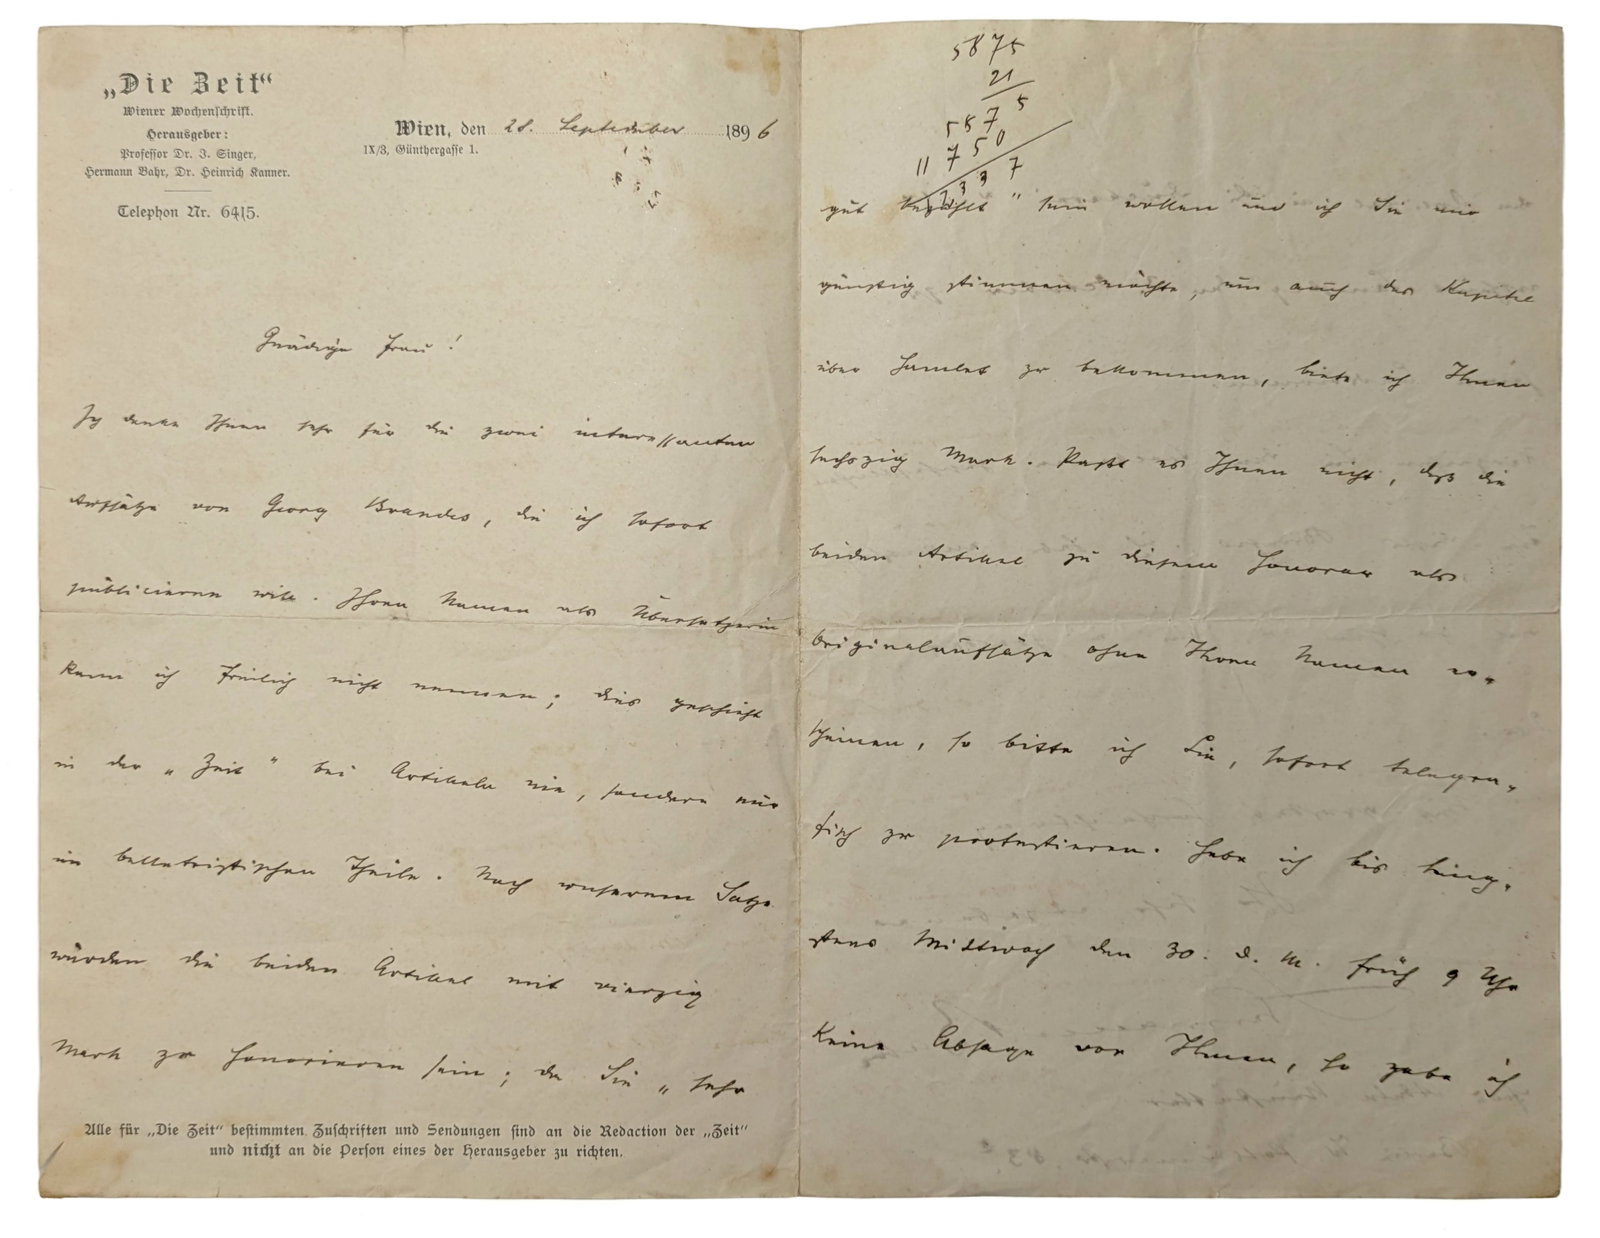 „Die Zeit“
Wiener Wochenschrift.
Herausgeber:
Professor Dr. I. Singer,
Hermann Bahr, Dr. Heinrich Kanner.
Telephon Nr. 6415.
Wien, den 28. September 1896
IX/3, Günthergasse 1.
Gnädige Frau!
Ich danke Ihnen sehr für die zwei interessanten
Aufsätze von Georg Brandes, die ich sofort
publicieren will. Ihren Namen als Übersetzerin
kann ich freilich nicht nennen; dies geschieht
in der „Zeit“ bei Artikeln nie, sondern nur
im belletristischen Theile. Nach unserem Satze
würden die beiden Artikel mit vierzig
Mark zu honorieren sein; da Sie „sehr
Alle für „Die Zeit“ bestimmten Zuschriften und Sendungen sind an die Redaction der „Zeit“
und nicht an die Person eines der Herausgeber zu richten.
5875
21
5875
11750
337
gut bezahlt“ sein wollen und ich Sie mir
günstig stimmen möchte, um auch das Kapitel
über Hamlet zu bekommen, biete ich Ihnen
sechszig Mark. Paßt es Ihnen nicht, daß die
beiden Artikel zu diesem Honorar als
Originalaufsätze ohne Ihren Namen er-
scheinen, so bitte ich Sie, sofort telegra-
fisch zu protestieren. Habe ich bis läng-
stens Mittwoch den 30. d. M. früh 9 Uhr
keine Absage von Ihnen, so gebe ich